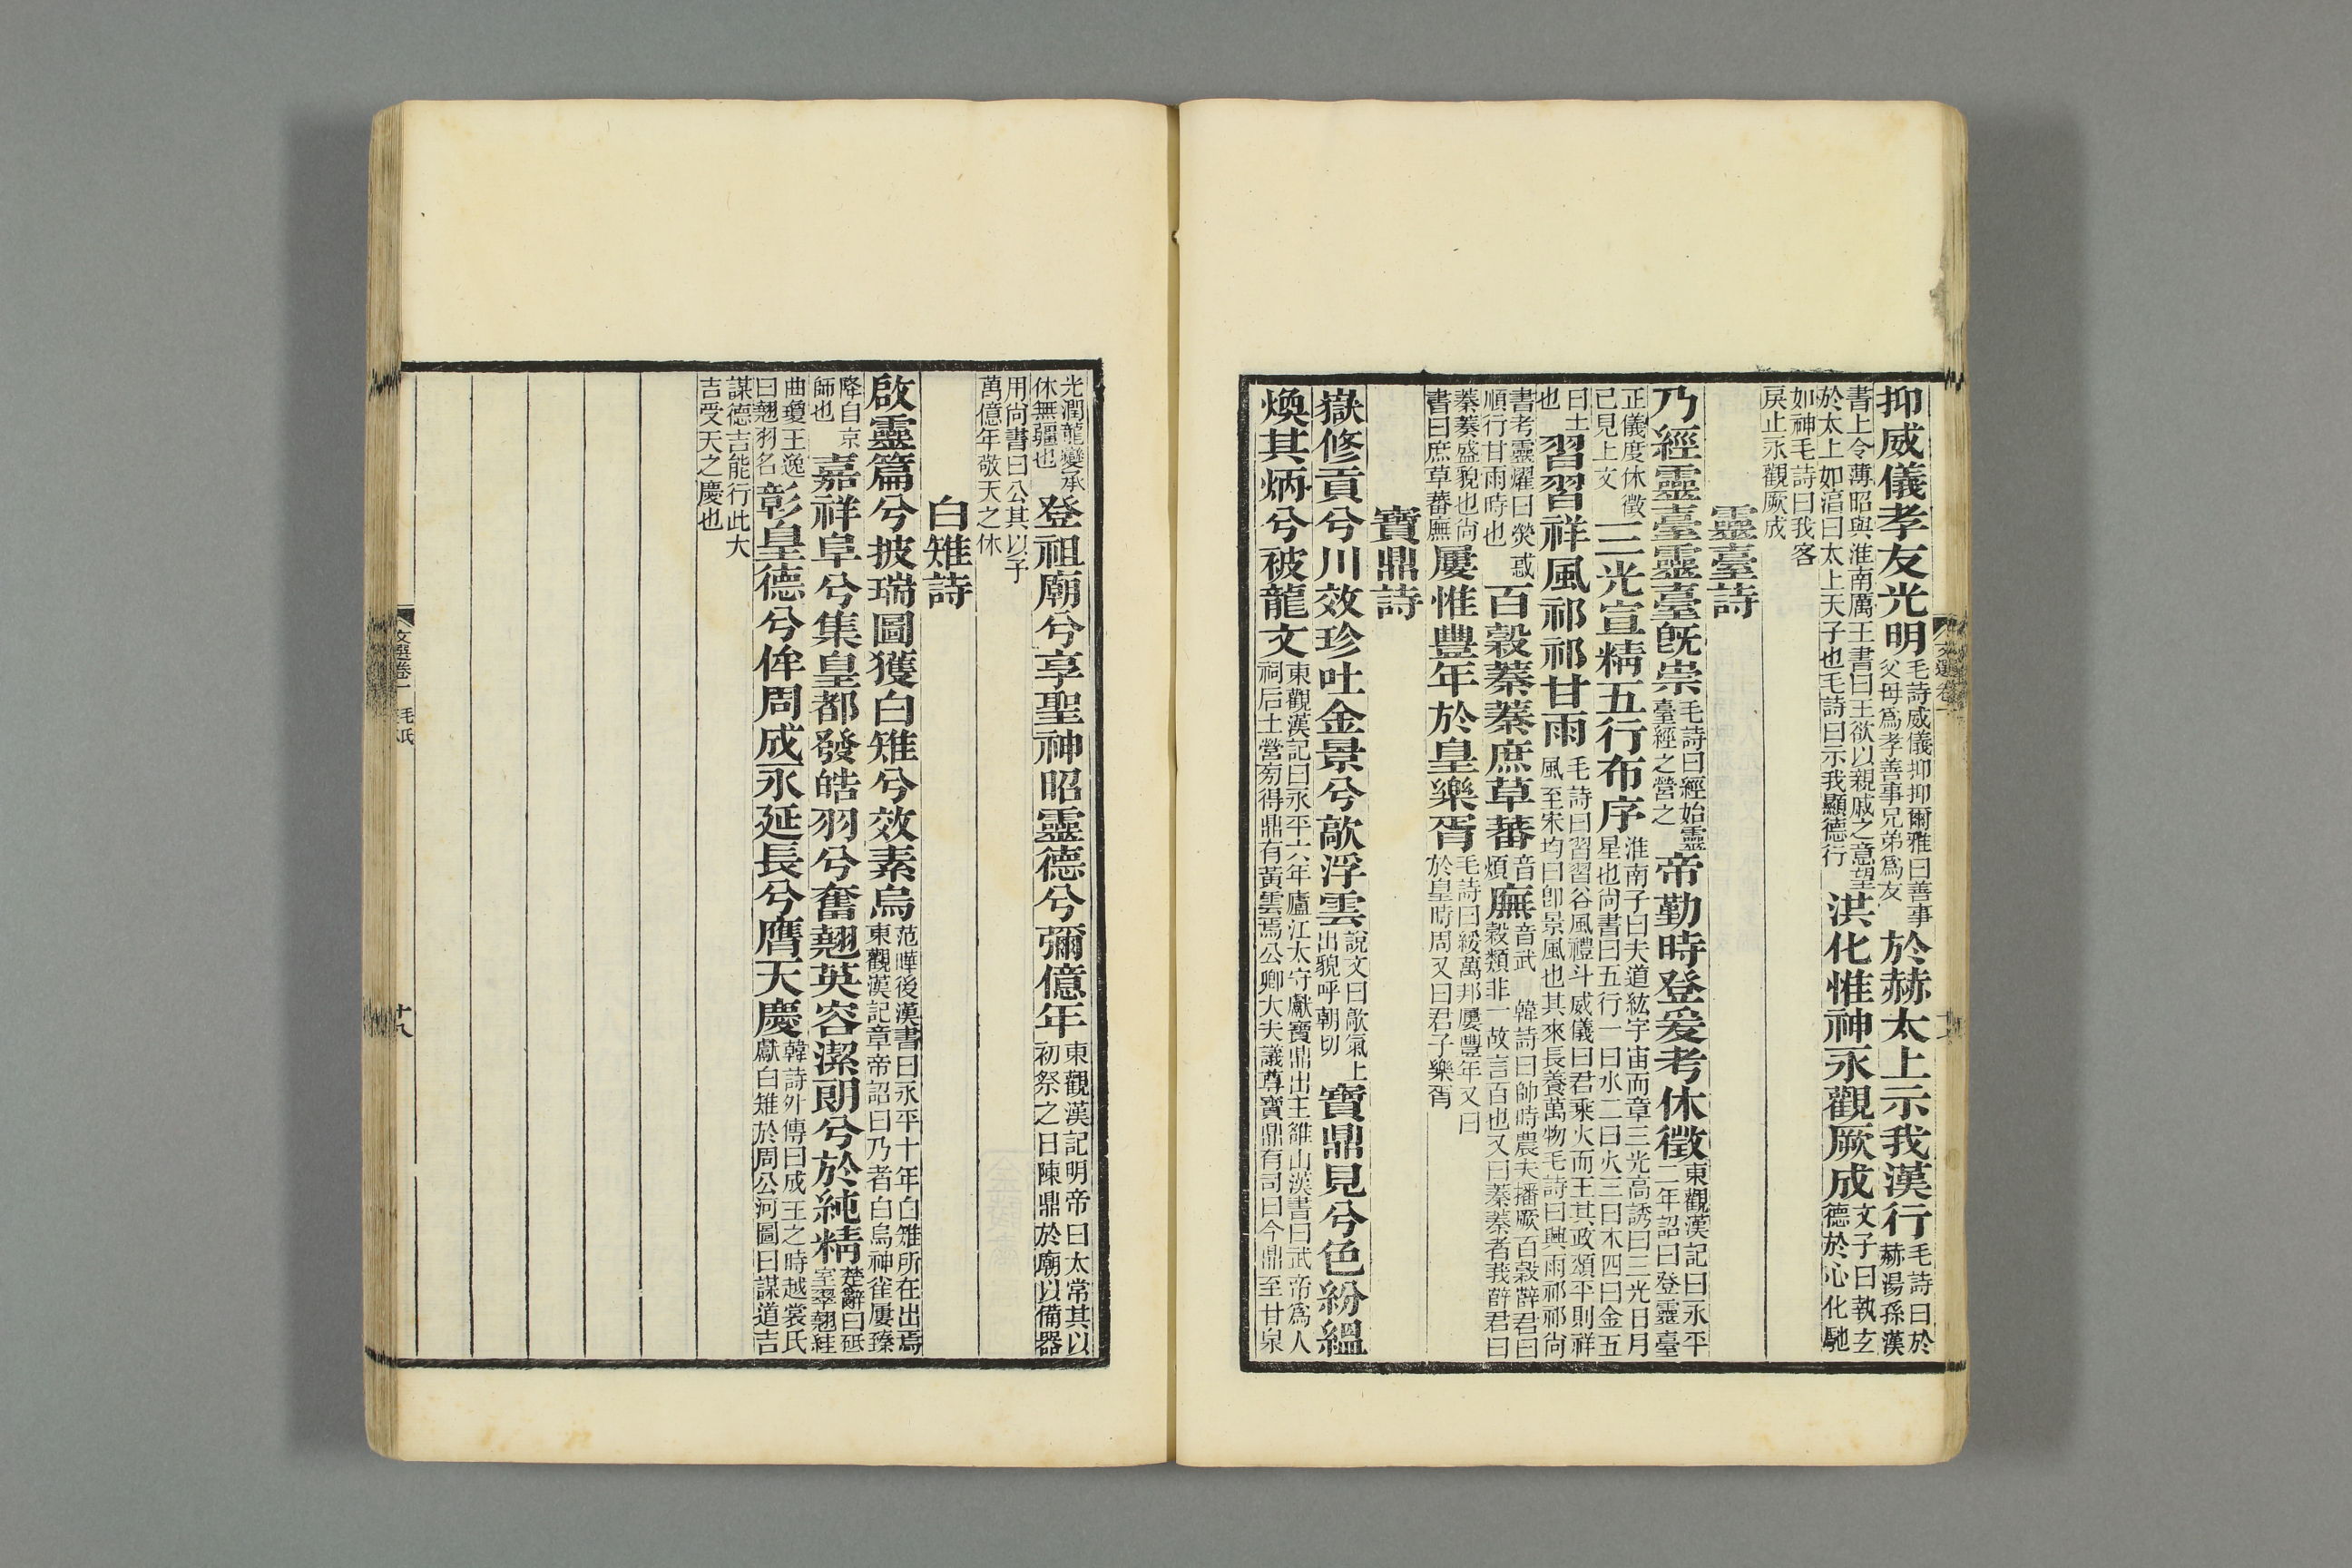 抑威儀孝友光明毛詩威儀抑抑爾雅曰善事父母爲孝善事兄弟爲友於赫太上示我漢行毛詩曰於赫湯孫漢
書上令薄昭與淮南厲王書曰王欲以親戚之意望於太上如淳曰太上天子也毛詩曰示我顯德行洪化惟神永觀厥成文子曰執玄德於心化馳
如神毛詩曰我客戾止永觀厥成
靈臺詩
乃經靈臺靈臺旣崇毛詩曰經始靈臺經之營之帝勤時登爰考休徵東觀漢記曰永平二年詔曰登靈臺
正儀度休徵已見上文三光宣精五行布序淮南子曰夫道紘宇宙而章三光高誘曰三光日月星也尚書曰五行一曰水二曰火三曰木四曰金五
曰土也習習祥風祁祁甘雨毛詩曰習習谷風禮斗威儀曰君乘火而王其政頌平則祥風至宋均曰卽景風也其來長養萬物毛詩曰興雨祁祁尚
書考靈耀曰熒惑順行甘雨時也百穀蓁蓁庶草蕃音煩廡音武韓詩曰帥時農夫播厥百穀薛君曰穀類非一故言百也又曰蓁蓁者莪薛君曰
蓁蓁盛貌也尚書曰庶草蕃廡屢惟豐年於皇樂胥毛詩曰綏萬邦屢豐年又曰於皇時周又曰君子樂胥
寶鼎詩
嶽修貢兮川效珍吐金景兮歊浮雲說文曰歊氣上出貌呼朝切寶鼎見兮色紛縕
煥其炳兮被龍文東觀漢記曰永平六年廬江太守獻寶鼎出王雒山漢書曰武帝爲人祠后土營匆得鼎有黃雲焉公卿大夫議尊寶鼎有司曰今鼎至甘泉
光潤龍變承休無疆也登祖廟兮享聖神昭靈德兮彌億年東觀漢記明帝曰太常其以初祭之日陳鼎於廟以備器
用尚書曰公其以予萬億年敬天之休
白雉詩
啟靈篇兮披瑞圖獲白雉兮效素烏范曄後漢書曰永平十年白雉所在出焉東觀漢記章帝詔曰乃者白烏神雀屢臻
降自京師也嘉祥阜兮集皇都發皓羽兮奮翹英容潔朗兮於純精楚辭曰砥室翠翹絓
曲瓊王逸曰翹羽名彰皇德兮侔周成永延長兮膺天慶韓詩外傳曰成王之時越裳氏獻白雉於周公河圖曰謀道吉
謀德吉能行此大吉受天之慶也
文選卷一
十八